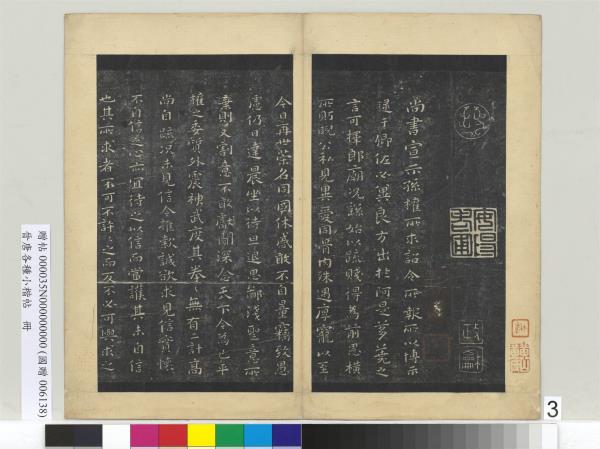 尚書宣示孫權所求詔令所報所以博示
逮于卿佐必異良方出於阿是芻蕘之
言可擇郎廟況繇始以疏賤得爲前恩橫
所貺睨公私見異愛同骨肉殊遇厚寵以至
今日再世榮名同國休慼敢不自量竊致愚
慮仍日達晨坐以待旦退思鄙淺聖意所
棄則又割意不敢獻聞深念天下今爲已平
權之委質外震神武度其拳拳無有二計高
尚自疏況未見信今推款誠欲求見信實懷
不自信之心亦宜待之以信而當護其未自信
也其所求者不可不許許之而反不必可與求之
贈帖 000035N000000000 (國贈 006138)
晉唐各種小楷帖 冊
3